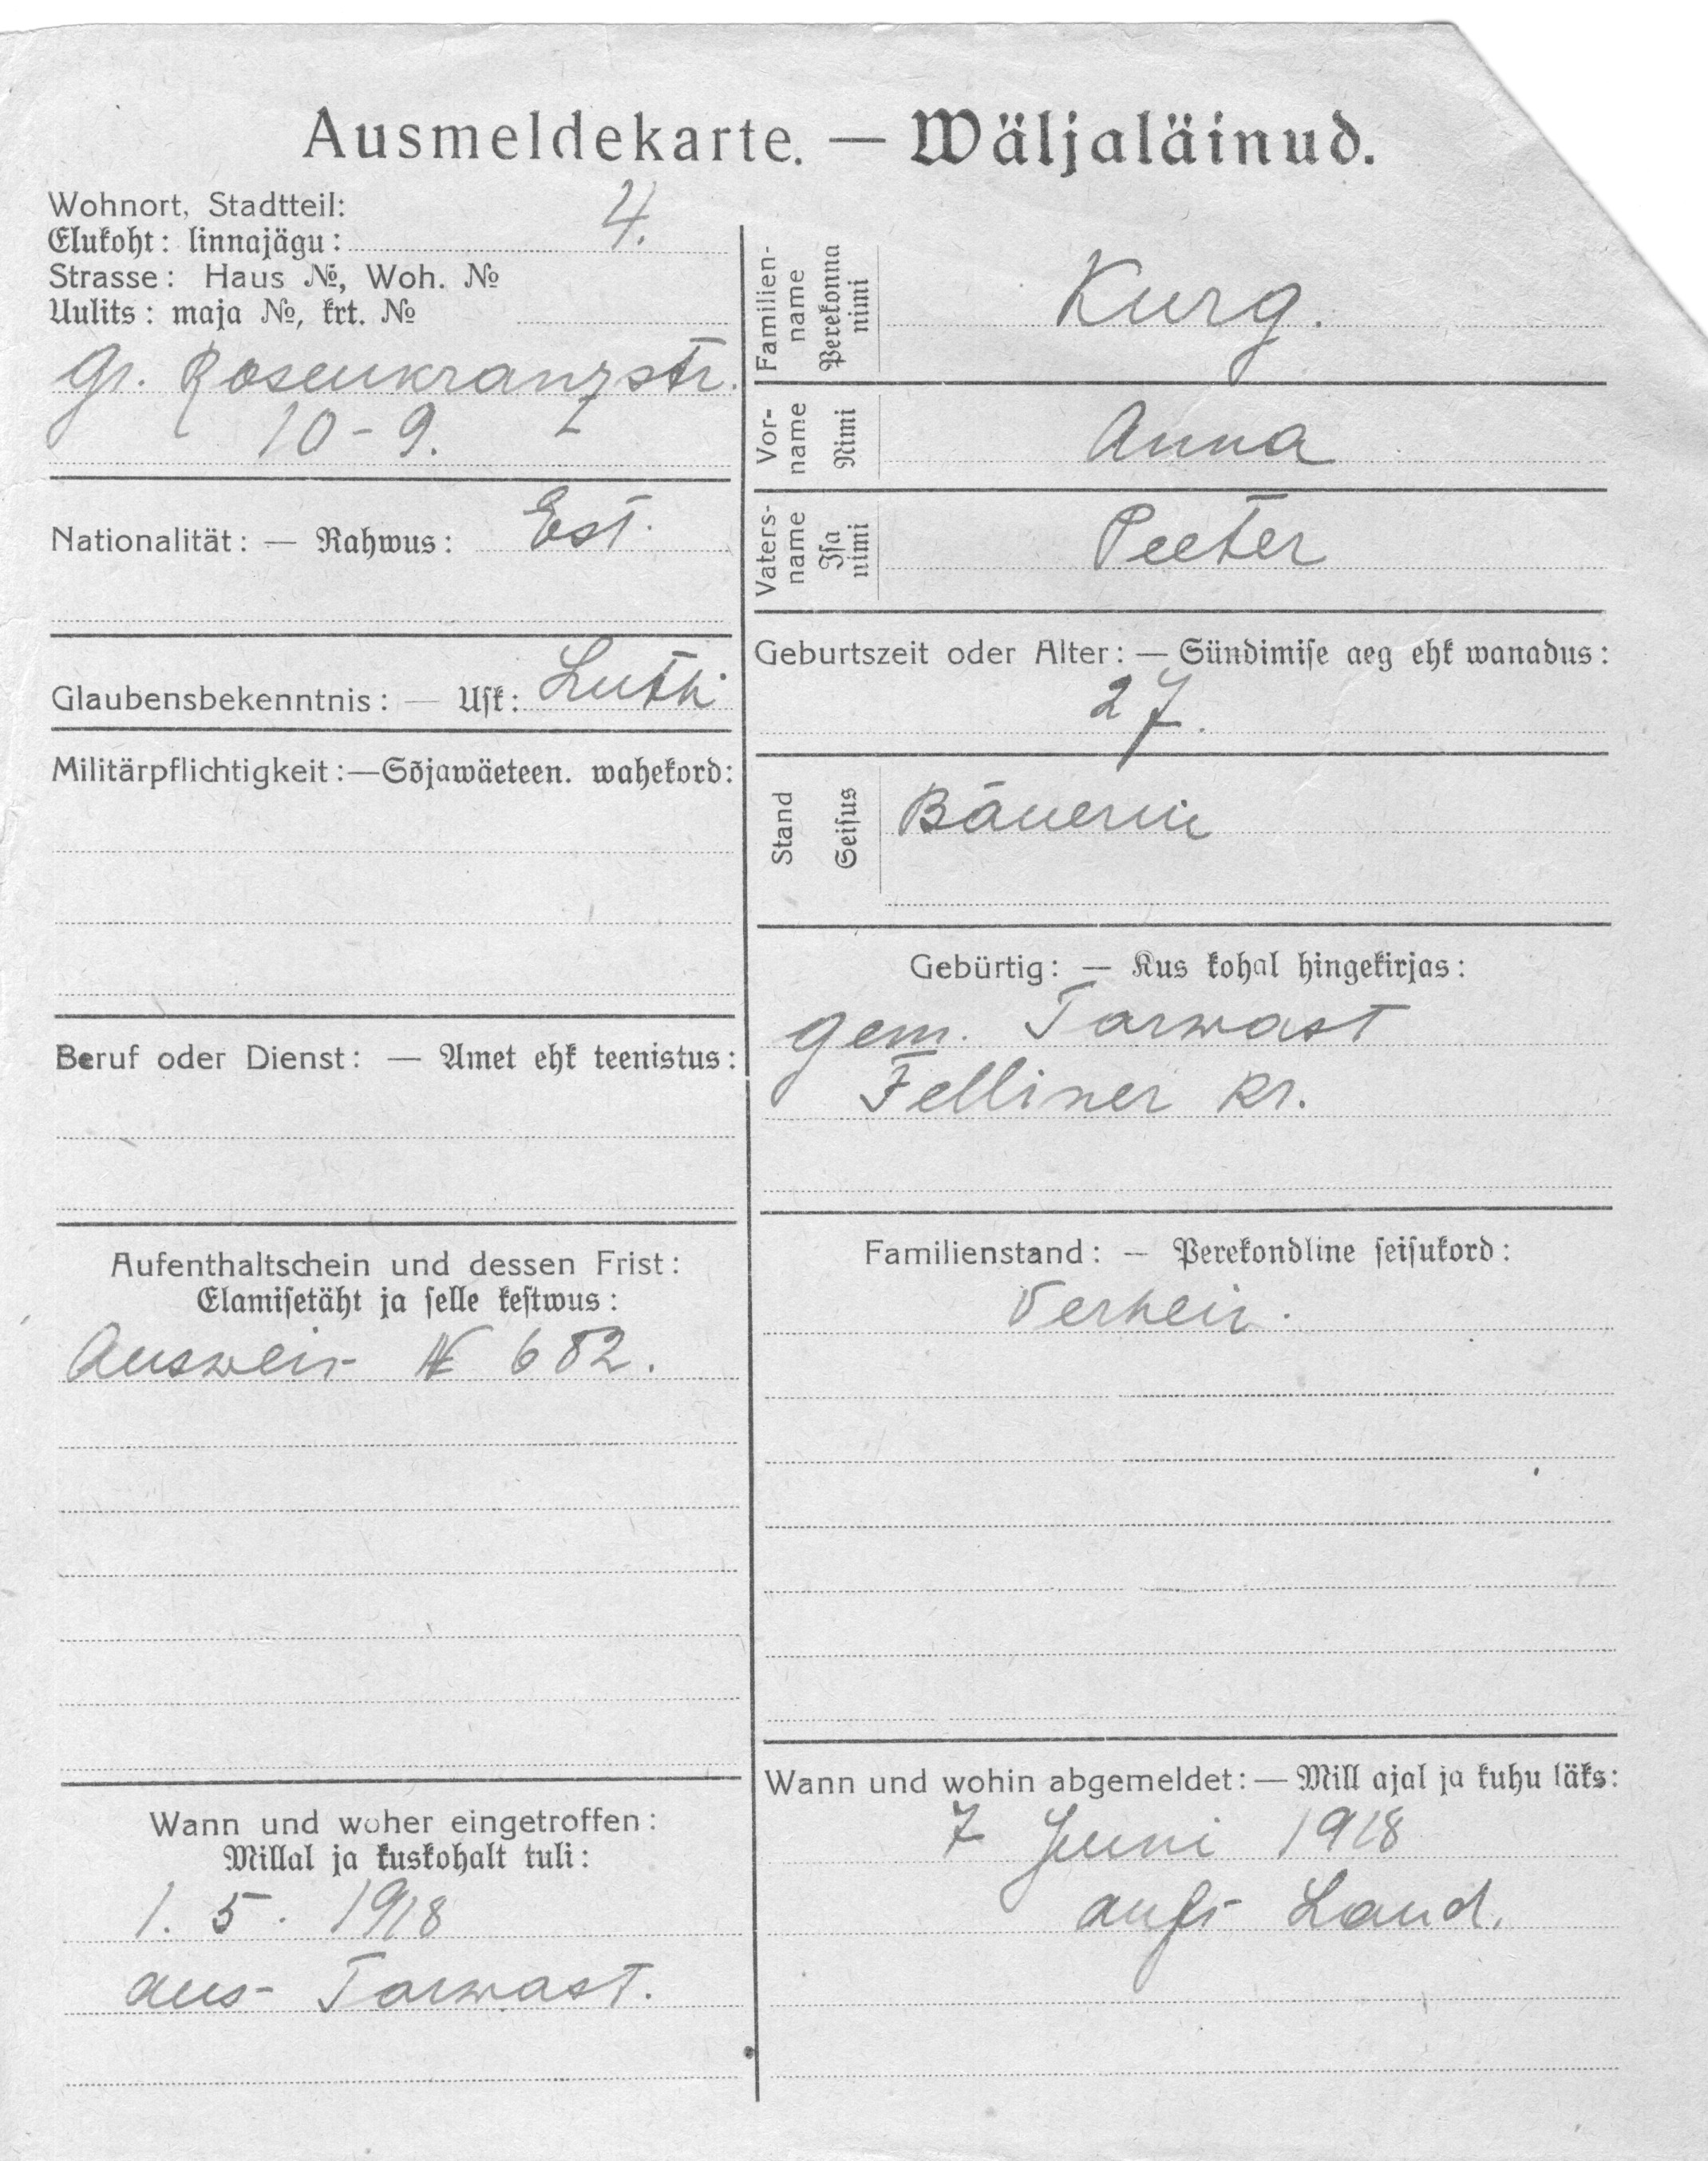 Ausmeldekarte. — Wäljaläinud.
Wohnort, Stadtteil:
Elukoht: linnajägu: 4.
Strasse: Haus №, Woh. №
Uulits: maja №, krt. №
gr. Rosenkranzstr.
10-9.
Nationalität: — Rahwus: Est.
Glaubensbekenntnis: — Usk: Luth.
Militärpflichtigkeit: — Sõjawäeteen. wahekord:
Beruf oder Dienst: — Amet ehk teenistus:
Aufenthaltschein und dessen Frist:
Elamisetäht ja selle kestwus:
Ausweis № 682.
Wann und woher eingetroffen:
Millal ja kuskohalt tuli:
1. 5. 1918
aus Tarwast.
Familien-
name
Perekonna
nimi
Kurg.
Vor-
name
Nimi
Anna
Vaters-
name
Isa
nimi
Peeter
Geburtszeit oder Alter: — Sündimise aeg ehk wanadus:
27.
Stand
Seisus
Bäuerin
Gebürtig: — Kus kohal hingekirjas:
gem. Tarwast
Felliner Kr.
Familienstand: — Perekondline seisukord:
Verheir.
Wann und wohin abgemeldet: — Mill ajal ja kuhu läks:
7 Juni 1918
aufs Land.